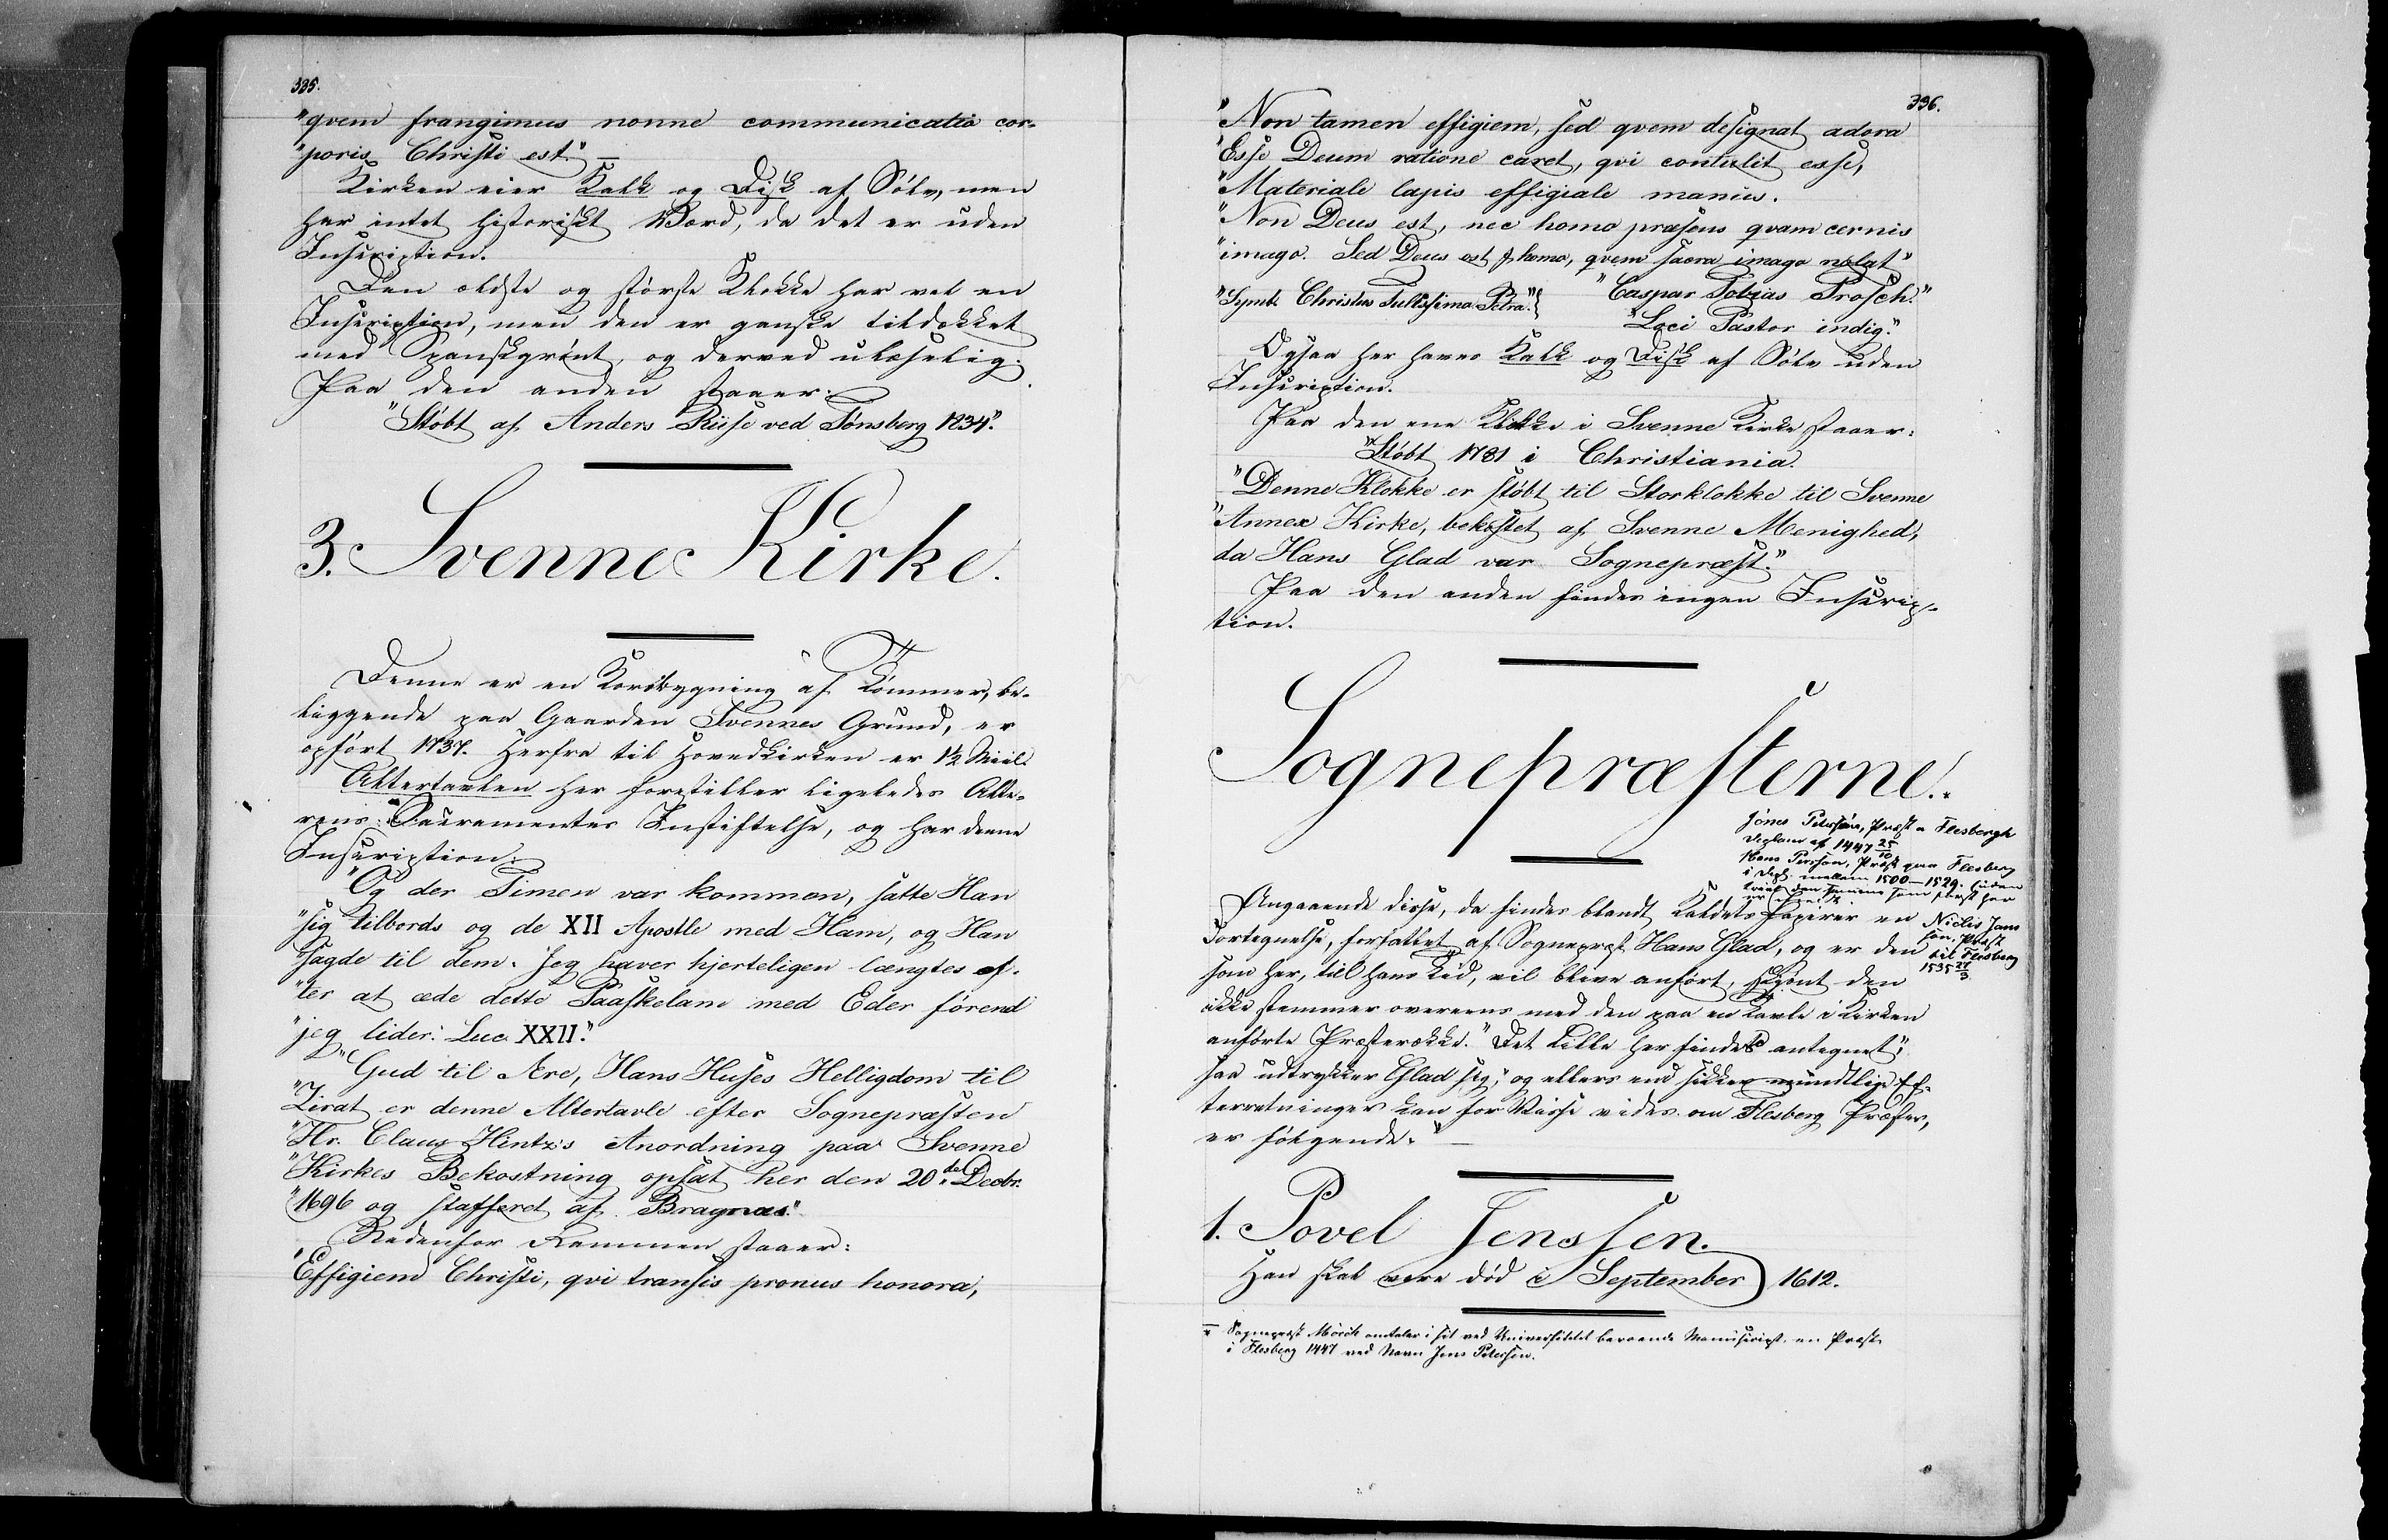 395.
"qvem frangimus nonne communicatio cor-
"poris Christi est." —
Kirken eier Kalk og Disk af Sølv, men
har intet historiskt Værd, da det er uden
Inscription.
Den ældste og største Klokke har vel en
Inscription, men den er ganske tildækket
med Spanskgrønt, og derved ulæselig.
Paa den anden staaer:
"Støbt af Anders Riise ved Tønsberg 1834."
3. Svenne Kirke.
Denne er en Korsbygning af Tømmer, be-
liggende paa Gaarden Svennes Grund, er
opført 1737. Herfra til Hovedkirken er 1½ Miil.
Altertavlen her forestiller ligeledes Alte-
rens Sacramentes Instiftelse, og har denne
Inscription:
"Og der Timen var kommen, satte Han
"sig tilbords og de XII Apostle med Ham, og Han
"sagde til dem. Jeg haver hjerteligen længtes ef-
"ter at æde dette Paaskelam med Eder førend
"jeg lider. Luc. XXII."
"Gud til Ære, Hans Huses Helligdom til
"Zirat er denne Altertavle efter Sognepræsten
"Hr. Claus Hintz's Anordning paa Svenne
"Kirkes Bekostning opsat her den 20de Decbr.
"1696 og stafferet af Bragnæs."
Nedenfor Rammen staaer:
"Effigiem Christi, qvi transis pronus honora,
396.
"Non tamen effigiem, sed qvem designat adora
"Esse Deum ratione caret, qvi contulit esse,
"Materiale lapis effigiale manus.
"Non Deus est, nec homo præsens qvam cernis
"imago. Sed Deus est & homo, qvem sacra imago notat"
"Symb. Christus Petra." "Caspar Tobias Trosch."
"Loci Pastor indig."
Ogsaa her haves Kalk og Disk af Sølv uden
Inscription.
Paa den ene Klokke i Svenne Kirke staaer:
"Støbt 1781 i Christiania.
"Denne Klokke er støbt til Storklokke til Svenne
"Annex Kirke, bekostet af Svenne Menighed,
da Hans Glad var Sognepræst."
Paa den anden findes ingen Inscrip-
tion.
Sognepræsterne.*
Jones Peterson, Præst a Flesbergh
Diplom af 1447 25/10
Hans Persson, Præst paa Flesberg
i Dipl. mellem 1500–1529. uden
tvivl den samme som
Niclis Jans
son, Præst
til Flesberg
1535 27/3.
Angaaende disse, da findes blandt Kaldets Papirer en
Fortegnelse, forfattet af Sognepræst Hans Glad, og er den
som her, till hans Tid, vil blive anført, skjønt den
ikke stemmer overeens med den paa en Tavle i Kirken
anførte Præsterække. "Det Lille her findes antegnet,"
saa udtrykker Glad sig, "og ellers ved sikker mundtlige Ef-
terretninger kan for Visse vides om Flesberg Præster,
er følgende." —
1. Povel Jenssen.
Han skal være død i September 1612.
* Sognepræst Mörch omtaler i sit ved Universitetet beroende Manuscript en Præst
i Flesberg 1447 ved Navn Jens Petersen.